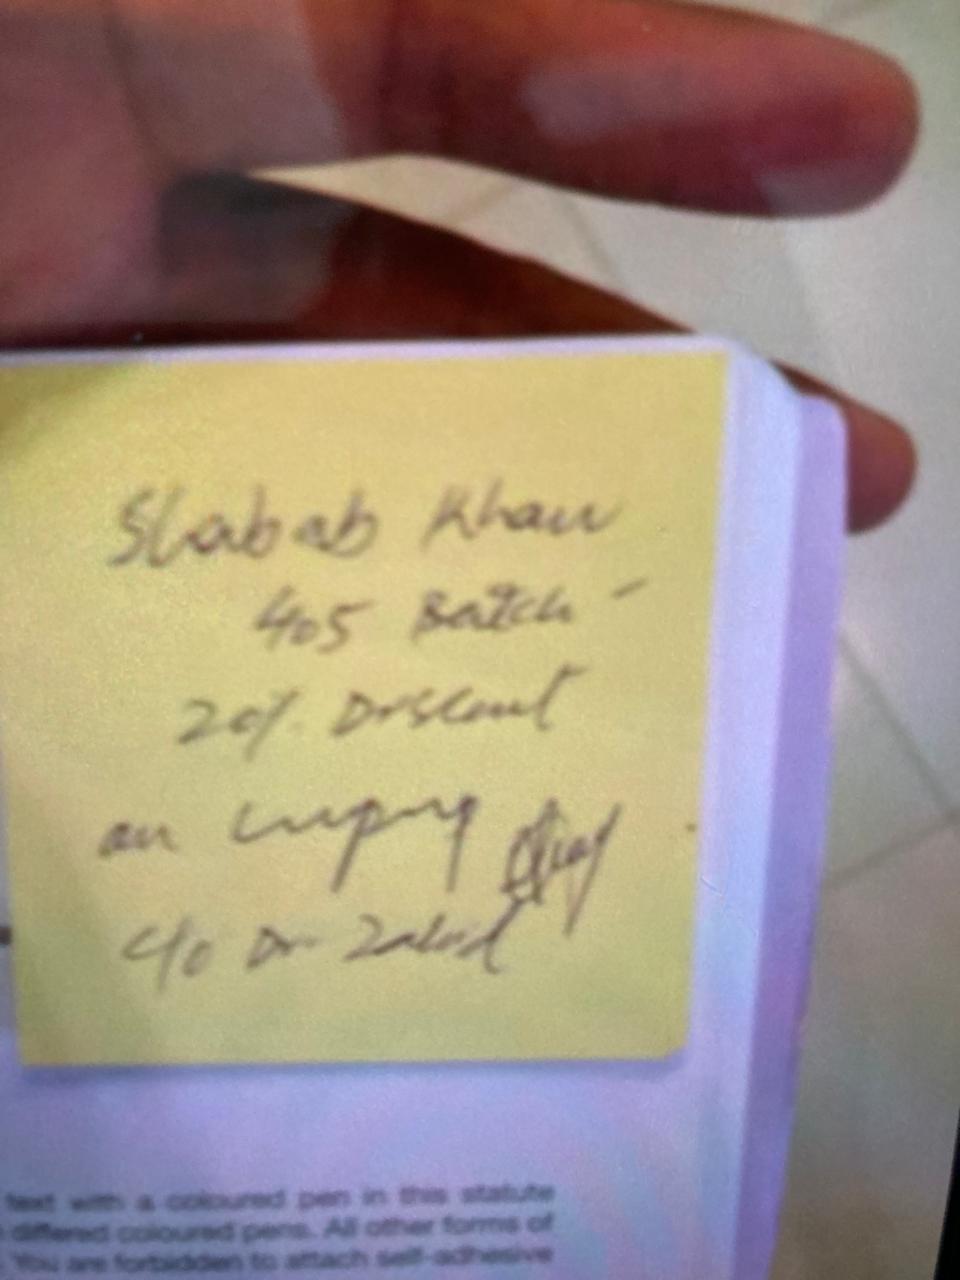 Shabab Khan
405 Batch -
20% Discount
on
c/o Dr Zahid
text with a coloured pen in this statute
differed coloured pens. All other forms of
You are forbidden to attach self-adhesive